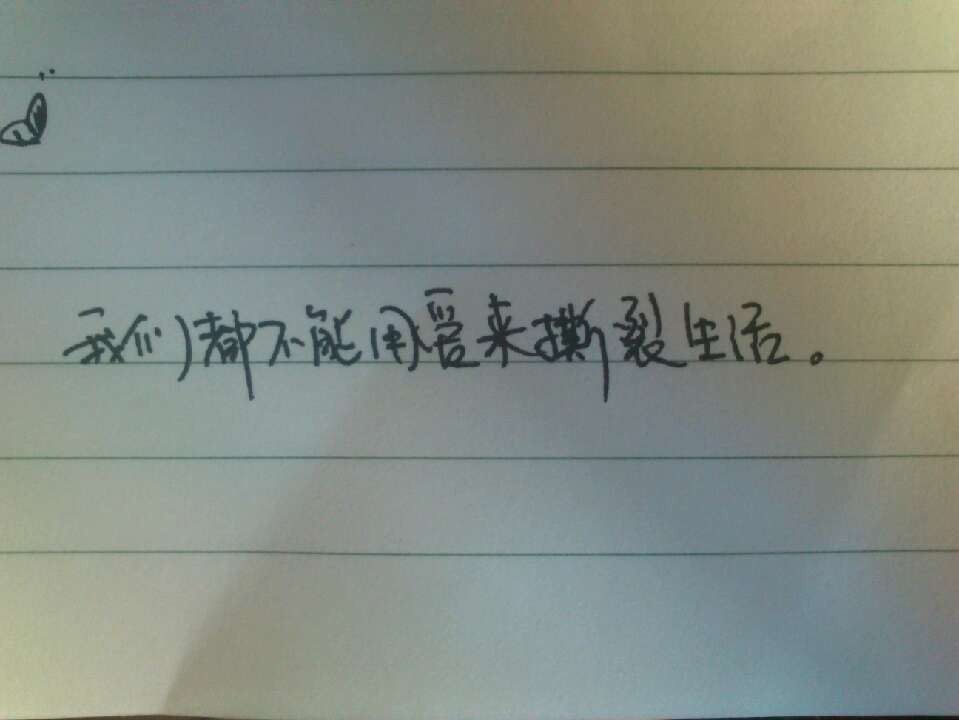 我们都不能用爱来撕裂生活。